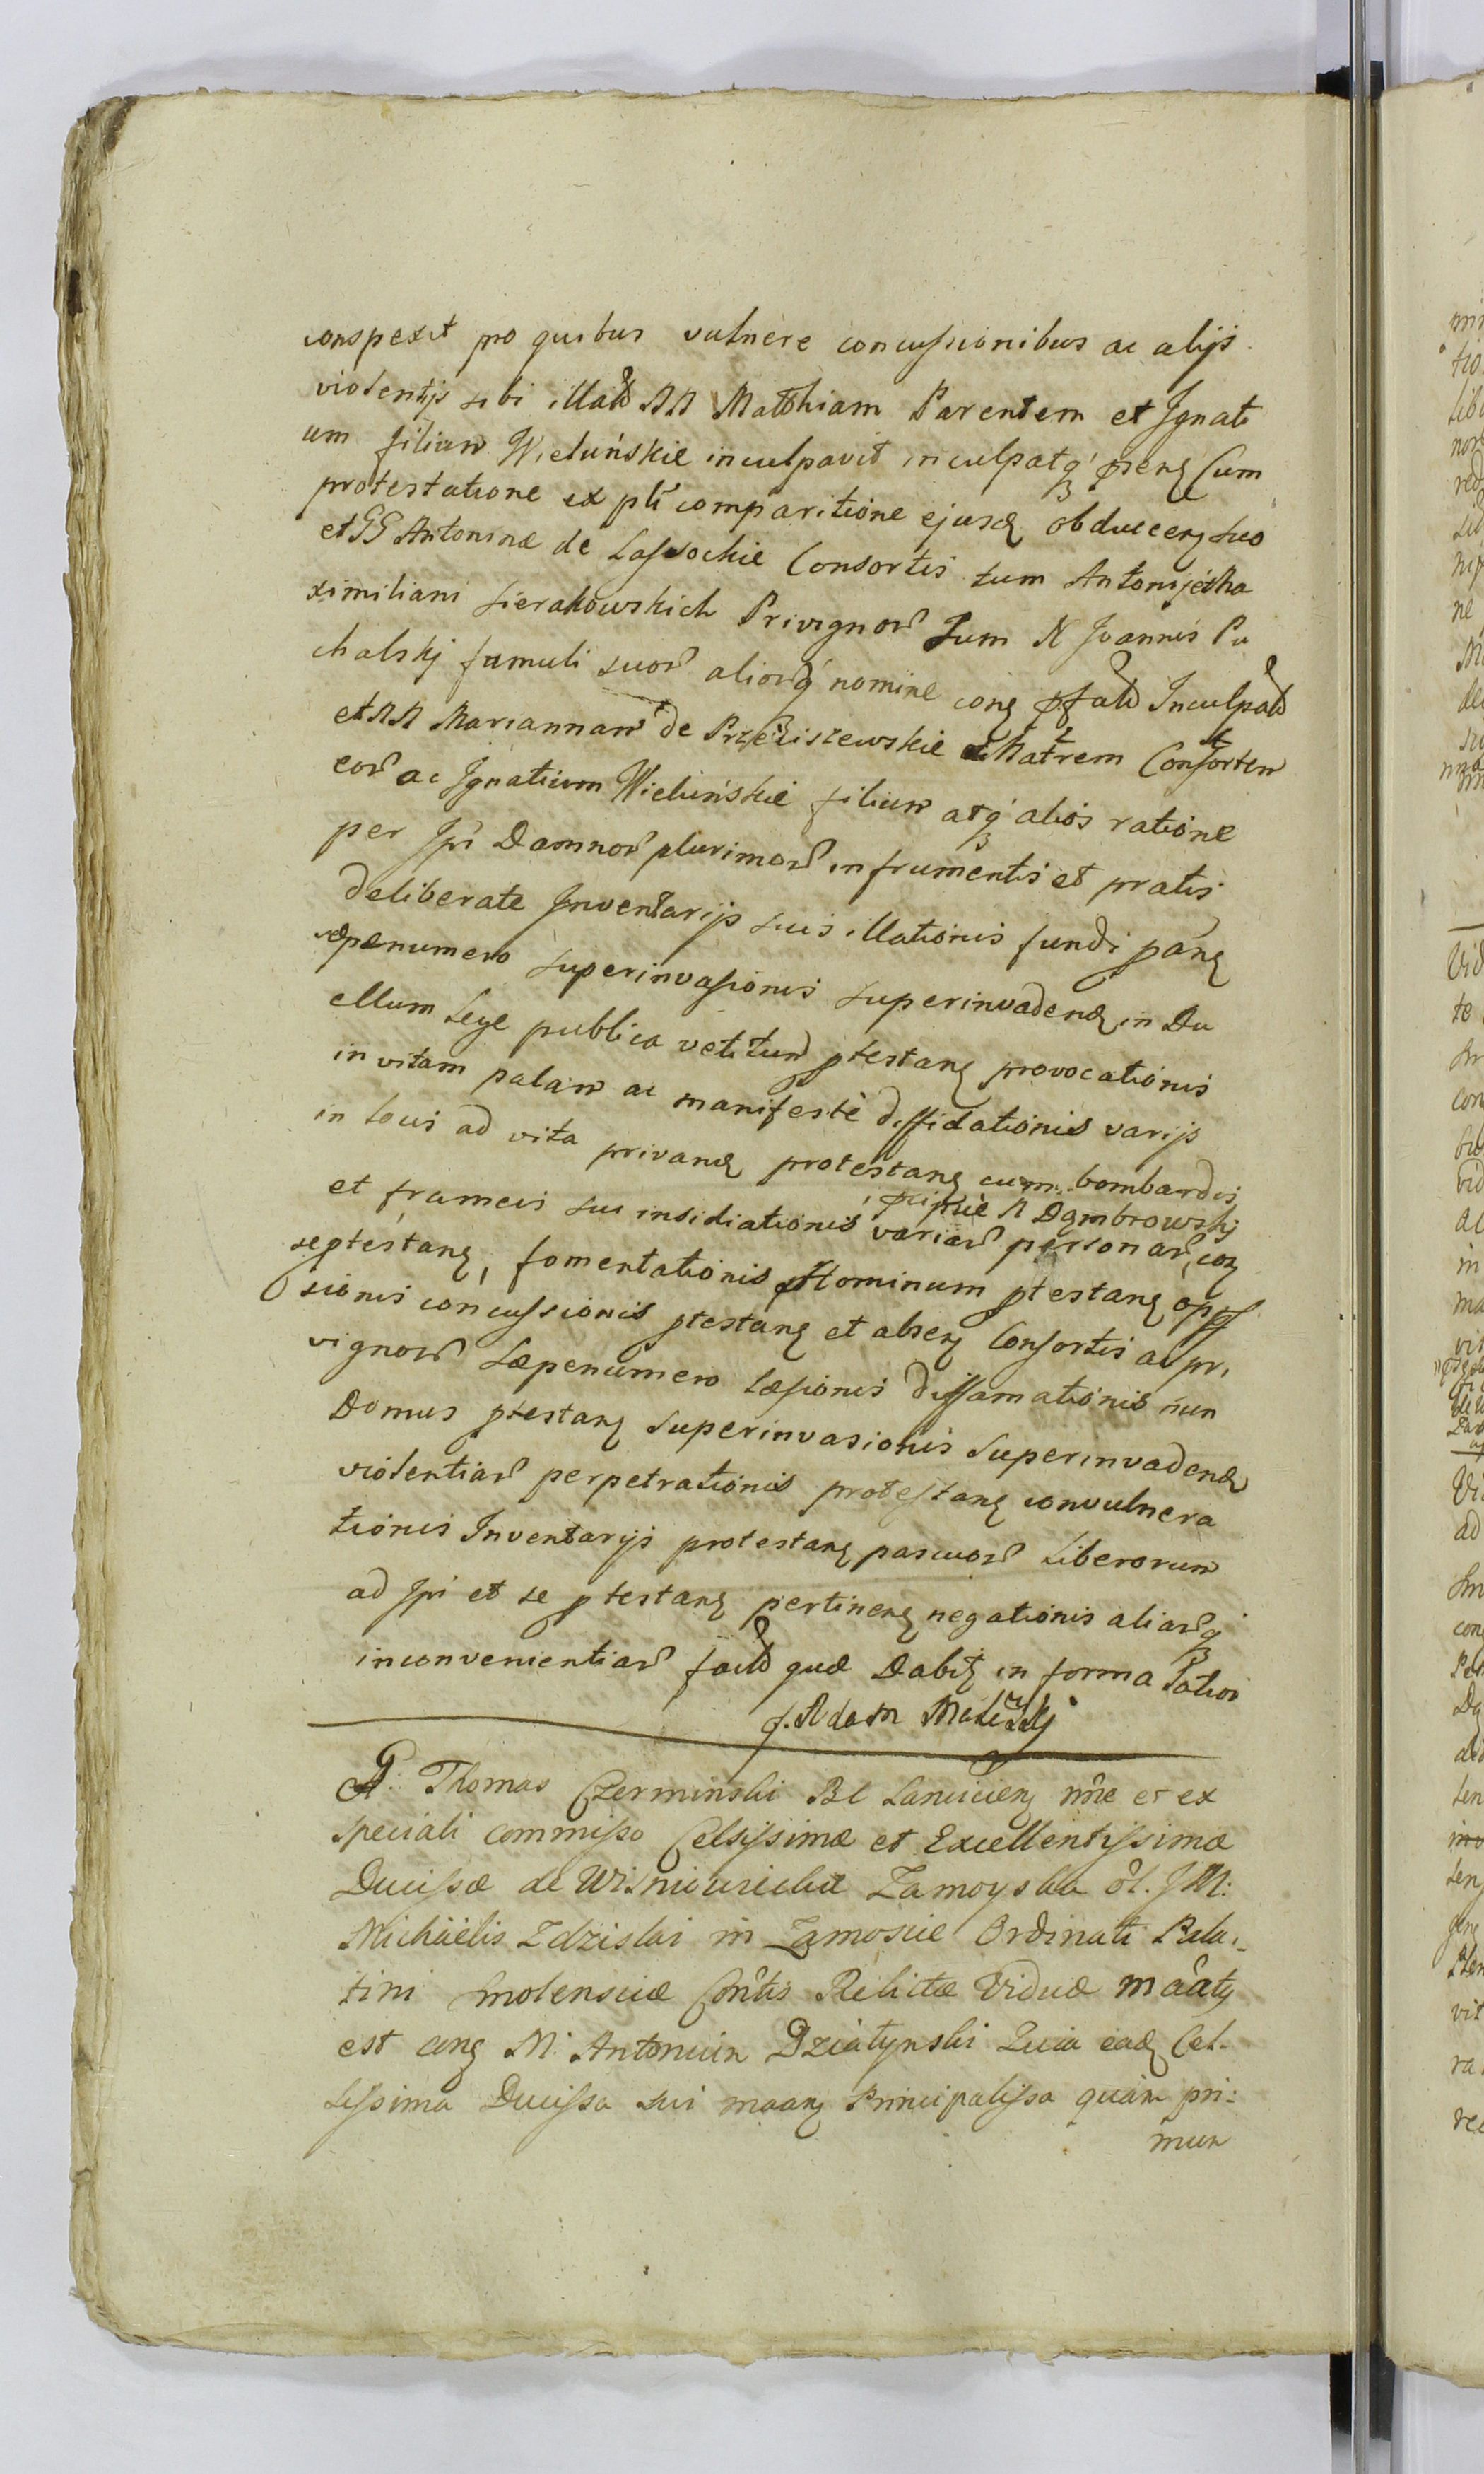 conspexit pro quibus vulnere concussionibus ac alijs
violentijs sibi illatis NN Matthiam Parentem et Ignati
um filium Wieluńskie inculpavit inculpatq; Cum
protestatione ex pti comparitione ejusd obducen suo
et GG Antoninæ de Lassockie Consortis tum Antonij et Ma
ximiliani Sierakowskich Privignor Tum N Joannis Pa
chalskj famuli suor aliorq; nomine con pfato Inculpato
et NN Mariannam de Przeziszewskie Matrem Consortem
eor ac Ignatium Wieluńskie filium atq; alios ratione
per Ipsi Damnor plurimor in frumentis et pratis
deliberate Inventarijs suis illationis fundi
sæpænumero superinvasionis superinvadend in Du
ellum Lege publica vetitum ptestan provocationis
in vitam palam ac manifestè diffidationis varijs
in locis ad vita privand protestan cum bombardis
et frameis sui insidiationis variar personar con
N Dąmbrowskj
se ptestan, fomentationis Hominum ptestan opps
sionis concussionis ptestan et absen Consortis ac pri
vignor sæpenumero læsionis diffamationis nun
Domus ptestan superinvasionis superinvadend
violentiar perpetrationis protestan convulnera
tionis Inventarijs protestan pascuor Liberorum
ad Ipsi et se ptestan pertinen negationis aliarq;
inconvenientiar fact quæ Dabit in forma Latiori
J. Adam
G. Thomas Czerminski BC Lancicien nne et ex
speciali commisso Celsissimæ et Excellentissimæ
Ducissæ de Wisniowieckie Zamoyska ol. JM:
Michäelis Zdzislai in Zamoscie Ordinati Pala-
tini Smolensciæ Contis Relictæ Viduæ maãty
est con M. Antonium Dziatynski Quia ead Cel-
sissima Ducissa sui maan Principalissa quàm pri:
mum